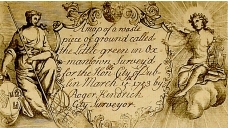 A map of a waste
piece of ground called
the Little green in Ox
mantown Survey'd
for the Hon. City of Dub-
lin March ye 1743 by
Roger Kendrick
City Surveyor.